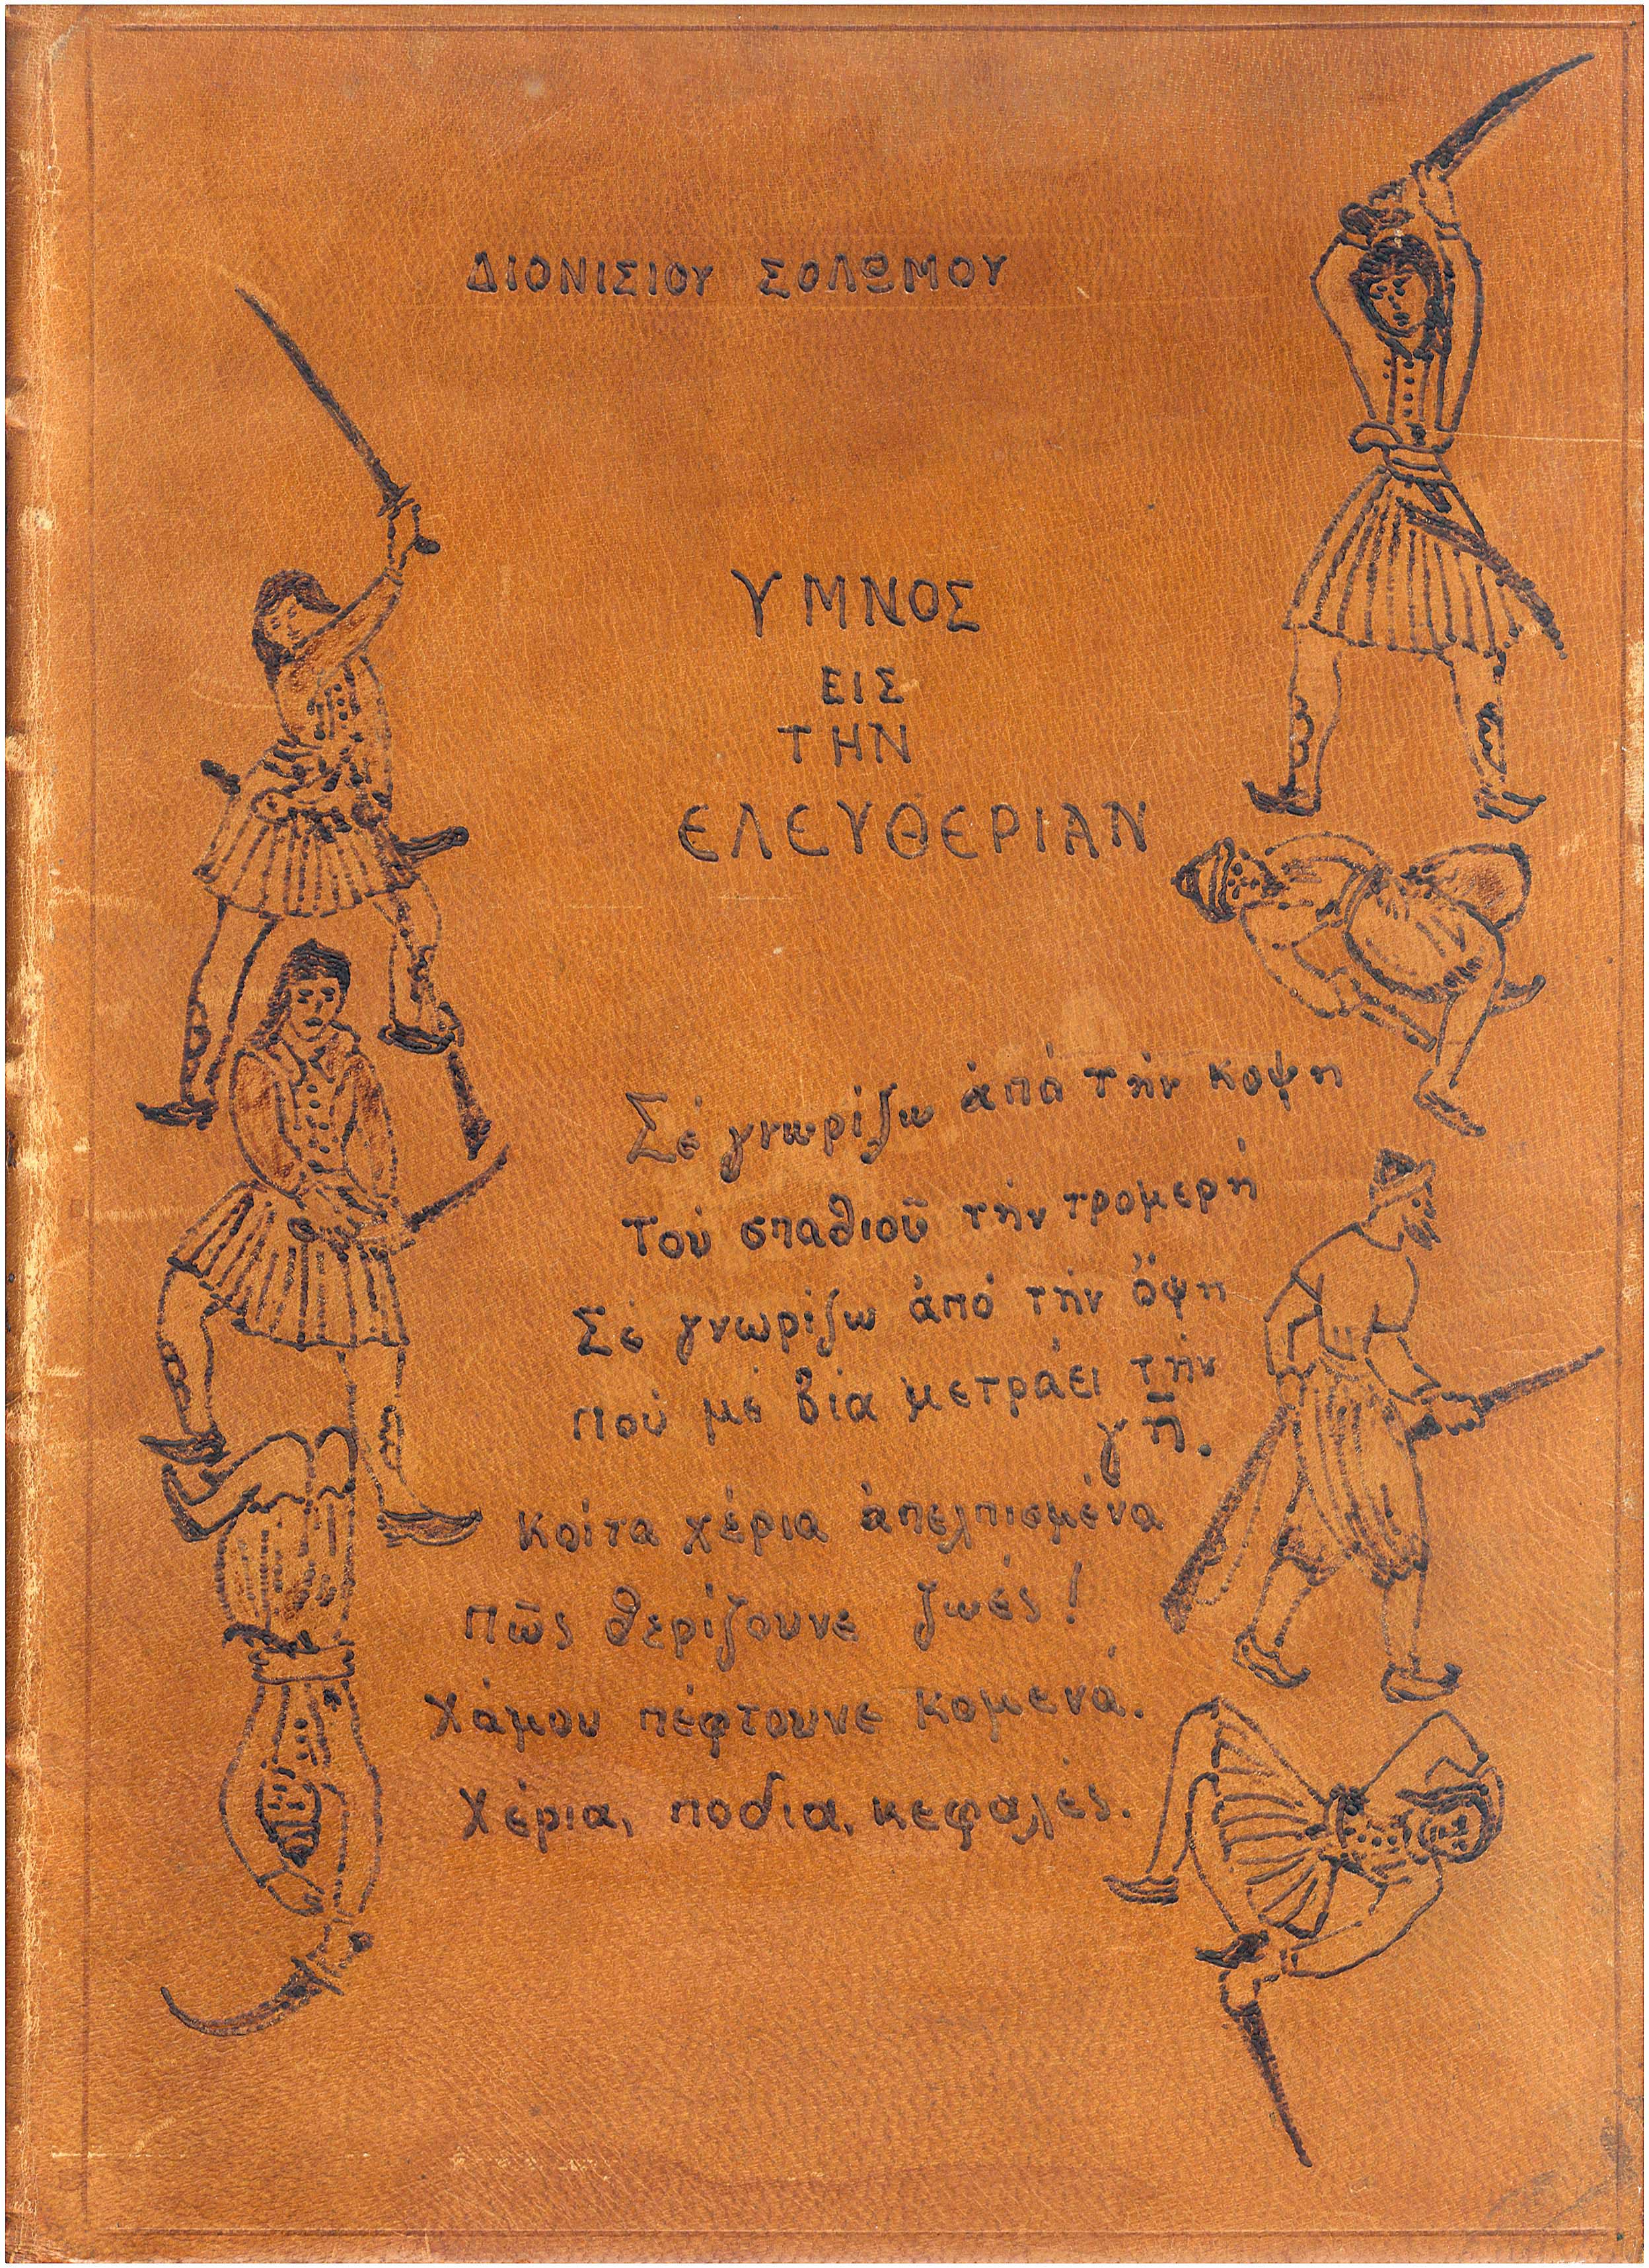 ΔΙΟΝΙΣΙΟΥ ΣΟΛΩΜΟΥ
ΥΜΝΟΣ
ΕΙΣ
ΤΗΝ
ΕΛΕΥΘΕΡΙΑΝ
Σέ γνωρίζω ἀπό τήν κοψη
Τοῦ σπαθιοῦ τήν τρομερή
Σέ γνωρίζω ἀπό τήν ὄψη
Πού μέ βία μετράει τήν
γῆ.
Κοίτα χέρια ἀπελπισμένα
Πῶς θερίζουνε ζωές!
Χάμου πέφτουνε κομενά.
Χέρια, ποδια, κεφαλές.